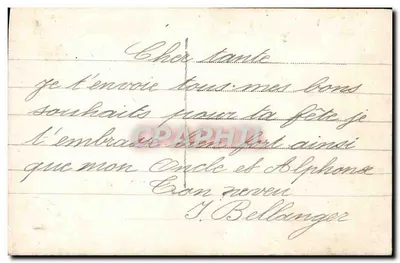 Cher tante
je t'envoie tous mes bons
souhaits pour ta fête je
t'embrasse bien fort ainsi
que mon Oncle et Alphonse
Ton neveu
J. Bellanger
CPAPHIL